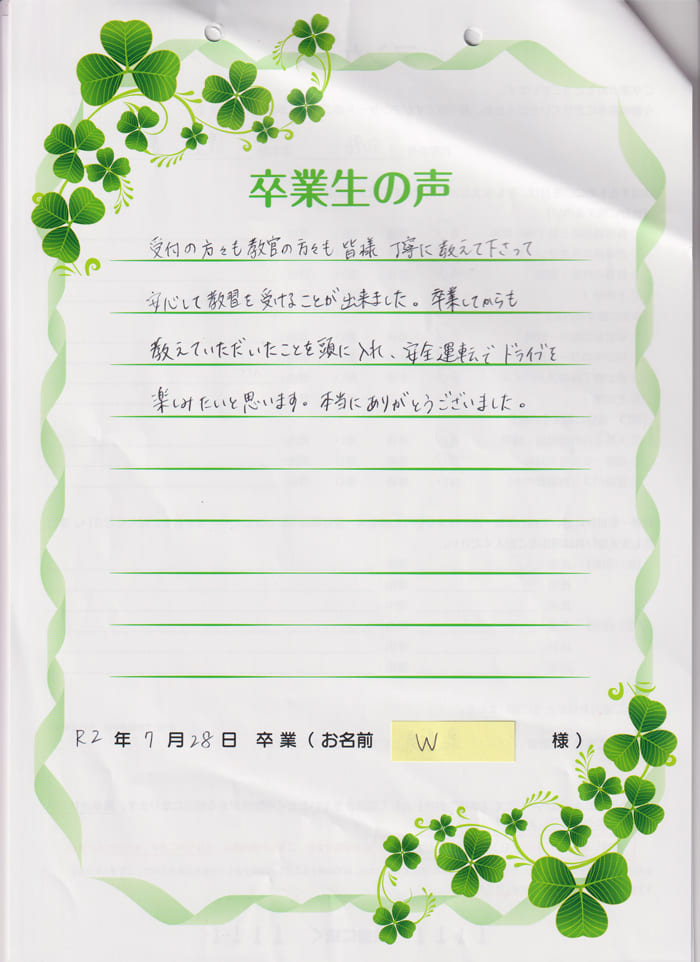 卒業生の声
受付の方々も教官の方々も皆様 丁寧に教えて下さって
安心して教習を受けることが出来ました。卒業してからも
教えていただいたことを頭に入れ、安全運転でドライブを
楽しみたいと思います。本当にありがとうございました。
R2 年 7 月 28 日 卒業（お名前 W 様）